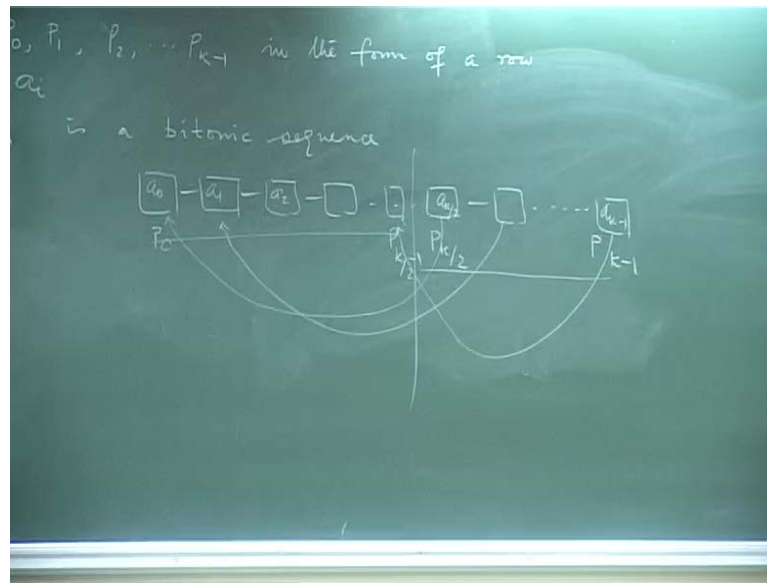 P₀, P₁, P₂, ... P_{k-1} in the form of a row
a_i
is a bitonic sequence
a₀ a₁ a₂ a_{k/2} a_{k-1}
P₀ P_{k/2-1} P_{k/2} P_{k-1}